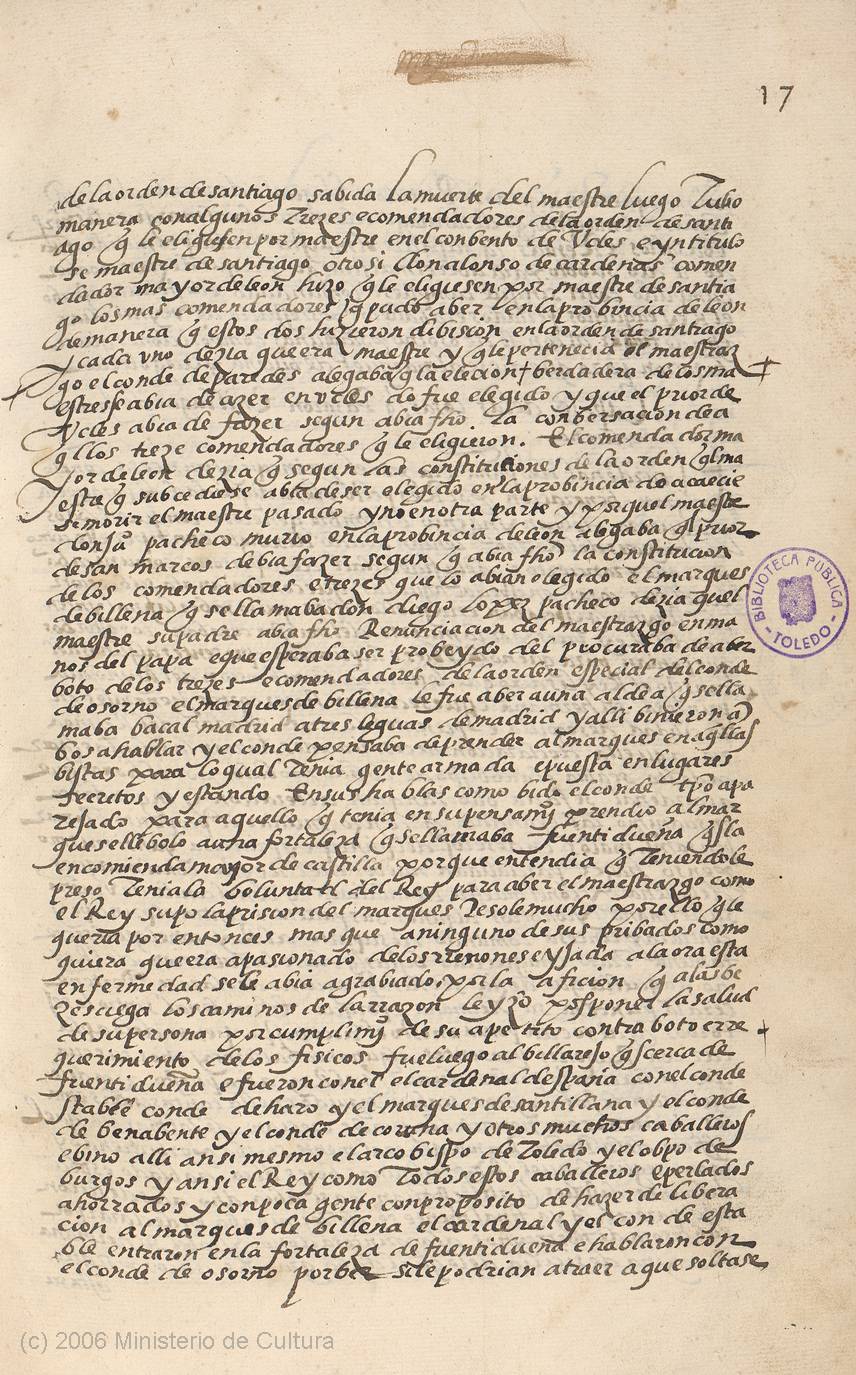 17
de la orden de santiago sabida la muerte del maestre luego Tubo
manera con algunos Trezes e comendadores de la orden de santi
ago q̃ le eligiesen por maestre en el conbento de Vcles e yntitulo
se maestre de santiago otro si don alonso de cardenas comen
dador mayor de leon hizo q̃ le eligiesen por maestre de santia
go los mas comendadores q̃ pudo aber en la probincia de leon
de manera q̃ estos dos hizieron dibision en la orden de santiago
y cada vno dezia que era maestre y q̃ le pertenecia el maestraz
go el conde de paredes alegaba q̃ la elecion berdadera de los ma
estres se abia de azer en vcles do fue elegido y que el prior de
Vcles abia de fazer segun abia fho. la conbersacion de a
q̃llos treze comendadores q̃ le eligieron. El comendador ma
yor de leon dezia q̃ segun las constitutiones de la orden q̃l ma
estre q̃ subcediese abia de ser elegido en la probincia do acaecie
se morir el maestre pasado y no en otra parte y porquel maestre
don juº pacheco murio en la probincia de leon alegaba q̃ prior
de san marcos debia fazer segun q̃ abia fho la constitucion
de los comendadores e trezes que lo abian elegido el marques
de billena q̃ se llamaba don diego lopez pacheco dezia quel
maestre su padre abia fho Renunciacion del maestrazgo en ma
nos del papa e que esperaba ser probeydo del procuraba de aber
boto de los trezes e comendadores de la orden especial del conde
de osorno el marques de billena se fue a ber a una aldea q̃ se lla
maba bacal madrid a tres leguas de madrid y alli binieron a
bos a hablar y el conde pensaba de prender al marques en aq̃llas
bistas para lo qual Tenia gente armada e puesta en lugares
secretos y estando En sus hablas como bido el conde tpõ apa
rejado para aquello q̃ tenia en su pensamjº prendio al mar
ques e llebolo a una fortaleza q̃ se llamaba fuentidueña q̃s la
encomienda mayor de castilla porque entendia q̃ Teniendole
preso Tenia la boluntad del Rey para aber el maestrazgo como
el Rey supo la prision del marques Pesole mucho por ello q̃ le
queria por entonces mas que a ninguno de sus pribados como
quiera que era apasionado de los rrenones e yjada a la ora esta
enfermedad se le abia agrabiado por la aficion q̃ a las be
zes ciega los caminos de la rrazon le yzo posponer la salud
de su persona por cumplimjº de su apetito contra boto e rre
querimiento de los fisicos fue luego al billarejo q̃s cerca de
fuentidueña e fueron con el el cardenal despaña con el conde
stable conde de haro y el marques de santillana y el conde
de benabente y el conde de coruna y otros muchos caballeros
e bino alli ansi mesmo el arcobispo de Toledo y el obpo de
burgos y ansi el Rey como Todos estos caballeros e perlados
ahorrados y con poca gente con proposito de hazer de libera
cion al marques de billena el cardenal y el con de esta
ble entraron en la fortaleza de fuentidueña e hablaron con
el conde de osorno por ber si le podrian atraer a que soltase
BIBLIOTECA PUBLICA
- TOLEDO -
(c) 2006 Ministerio de Cultura